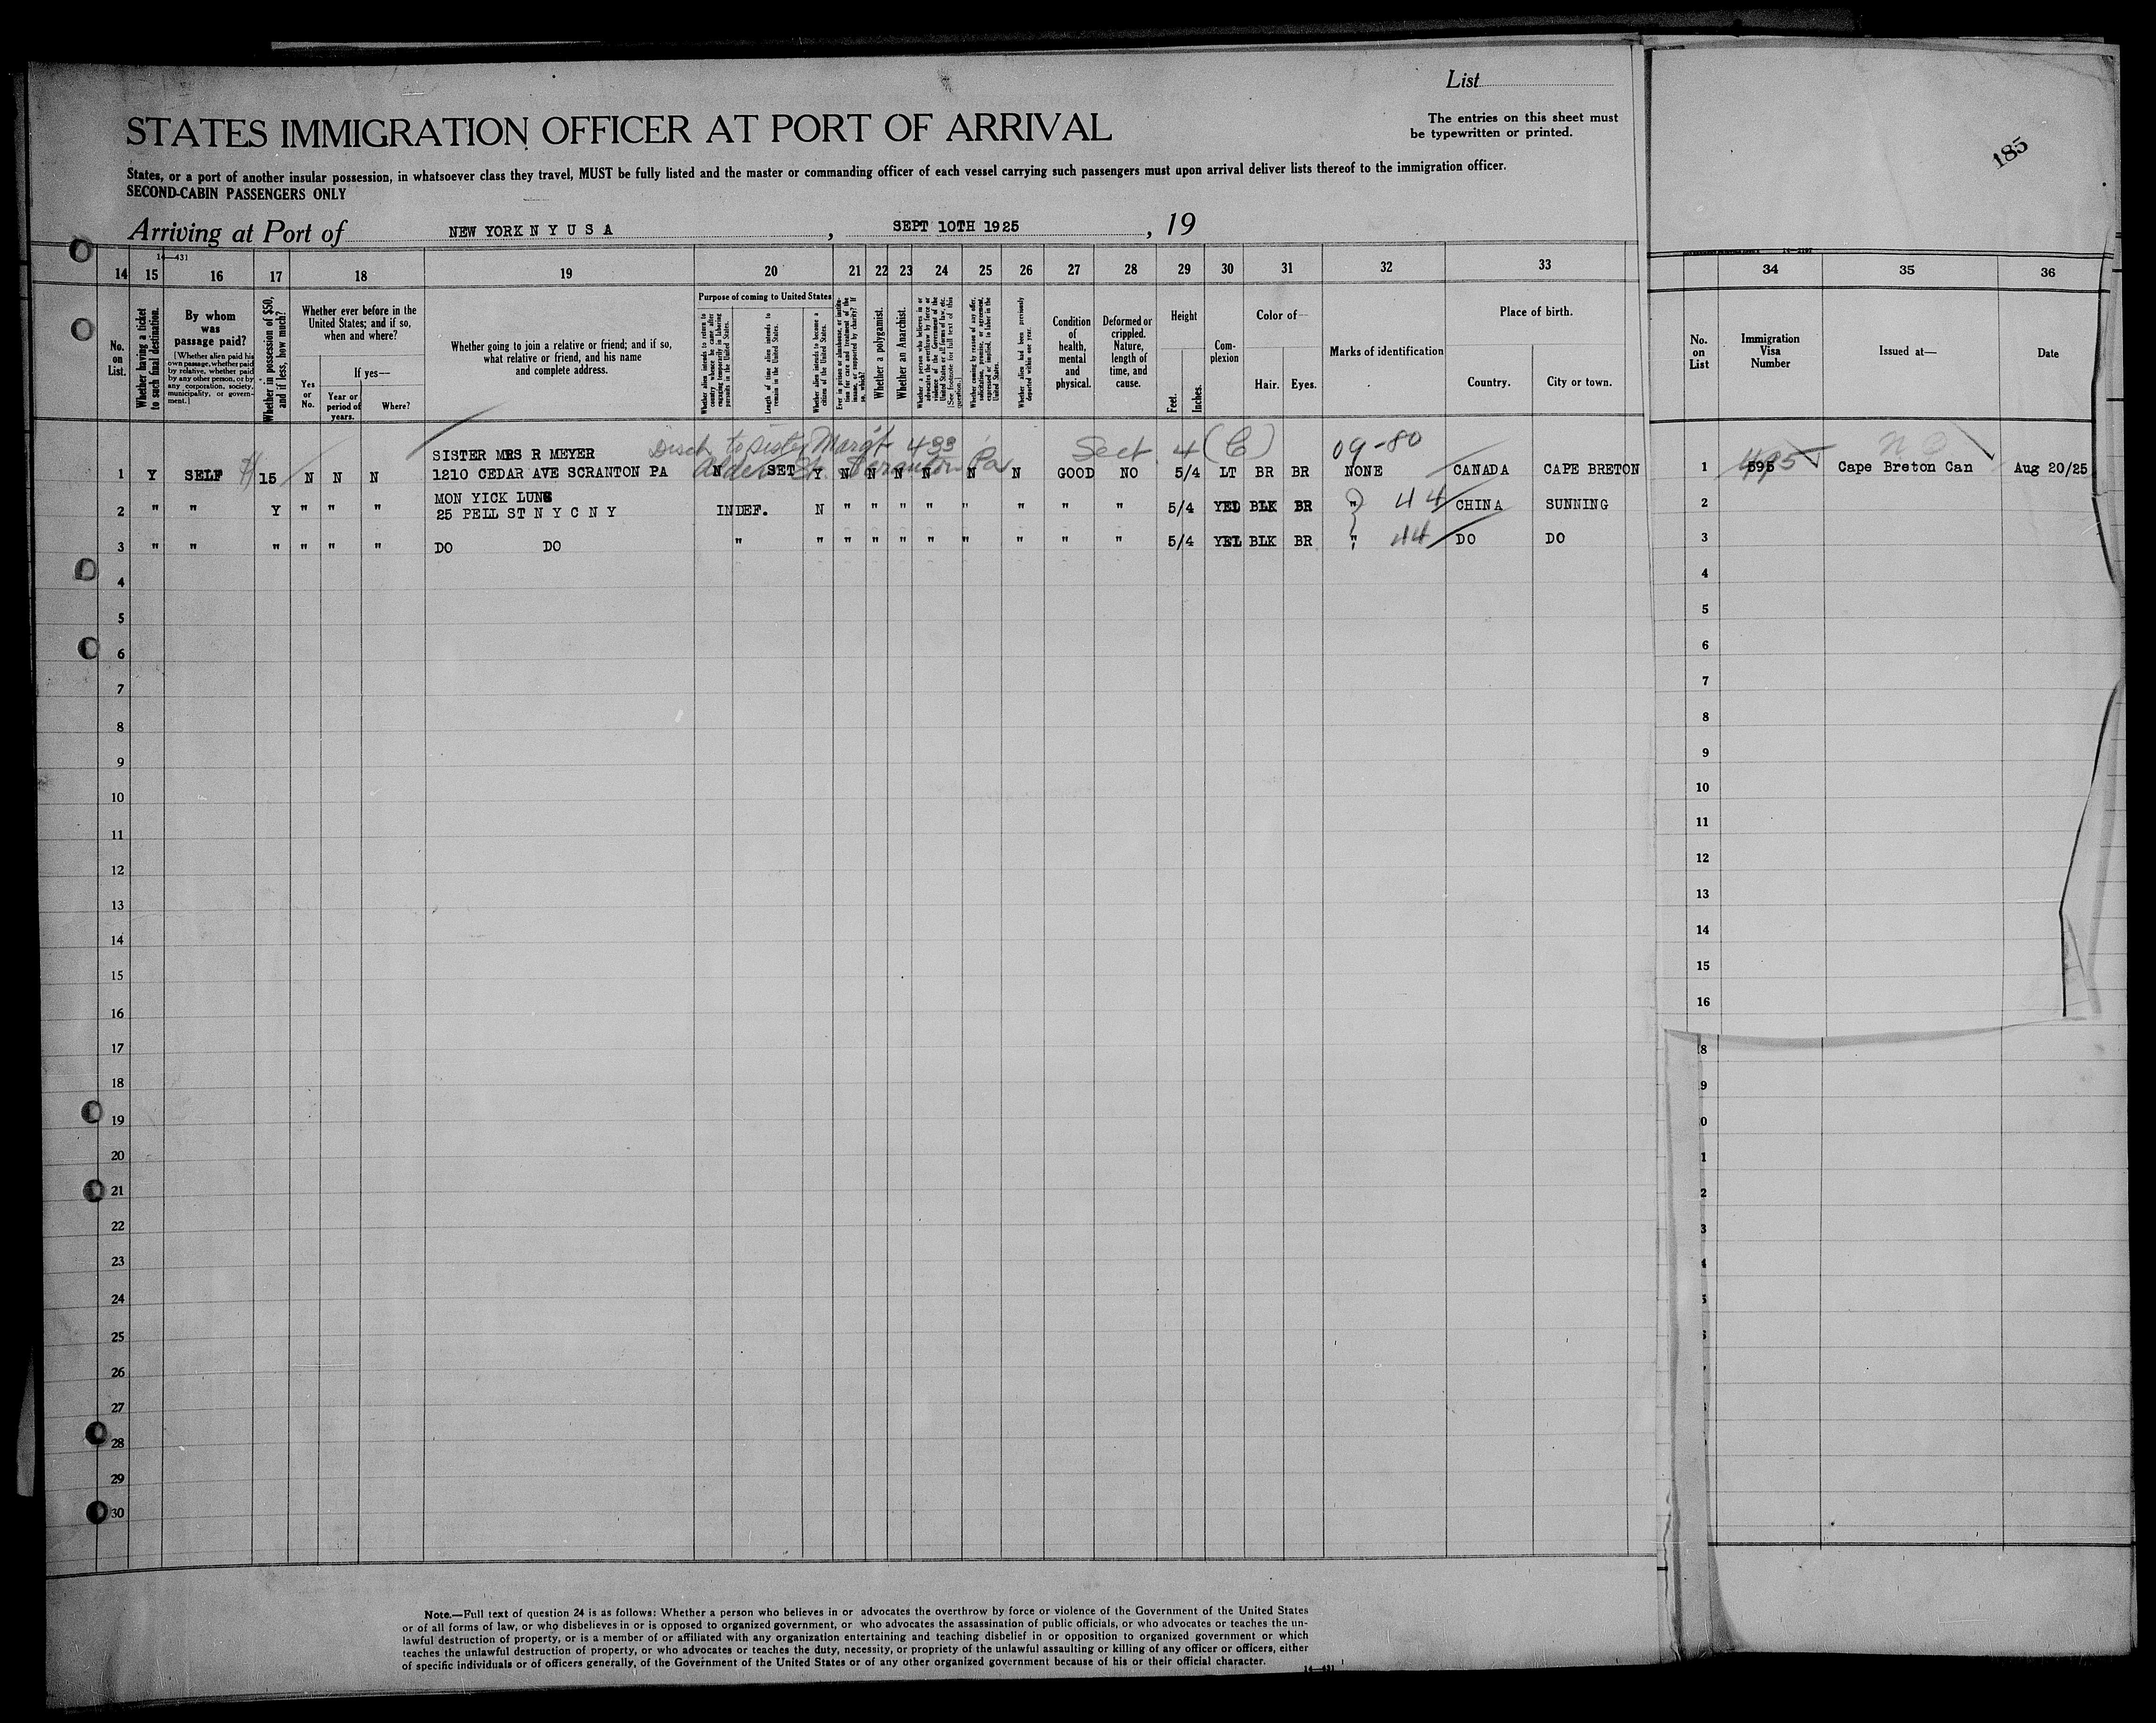 List
STATES IMMIGRATION OFFICER AT PORT OF ARRIVAL
The entries on this sheet must
be typewritten or printed.
185
States, or a port of another insular possession, in whatsoever class they travel, MUST be fully listed and the master or commanding officer of each vessel carrying such passengers must upon arrival deliver lists thereof to the immigration officer.
SECOND-CABIN PASSENGERS ONLY
Arriving at Port of NEW YORK N Y U S A , SEPT 10TH 1925 , 19
14—431
14 15 16 17 18 19 20 21 22 23 24 25 26 27 28 29 30 31 32 33 34 35 36
No. on List.
Whether having a ticket to such final destination.
By whom was passage paid?
[Whether alien paid his own passage, whether paid by relative, whether paid by any other person, or by any corporation, society, municipality, or government.]
Whether in possession of $50, and if less, how much?
Whether ever before in the United States; and if so, when and where?
Yes or No.
If yes—
Year or period of years.
Where?
Whether going to join a relative or friend; and if so, what relative or friend, and his name and complete address.
Purpose of coming to United States
Whether alien intends to return to country whence he came after engaging temporarily in laboring pursuits in the United States.
Length of time alien intends to remain in the United States.
Whether alien intends to become a citizen of the United States.
Ever in prison or almshouse, or institution for care and treatment of the insane, or supported by charity? If so, which?
Whether a polygamist.
Whether an Anarchist.
Whether a person who believes in or advocates the overthrow by force or violence of the Government of the United States or all forms of law, etc. [See footnote for full text of this question.]
Whether coming by reason of any offer, solicitation, promise, or agreement, expressed or implied, to labor in the United States.
Whether alien had been previously deported within one year.
Condition of health, mental and physical.
Deformed or crippled. Nature, length of time, and cause.
Height
Feet.
Inches.
Complexion
Color of—
Hair.
Eyes.
Marks of identification
Place of birth.
Country.
City or town.
No. on List
Immigration Visa Number
Issued at—
Date
Disch to sister Margt 433
Alder St. Scranton Pa
Sect. 4 (C)
09-80
SISTER MRS R MEYER
1 Y SELF $ 15 N N N 1210 CEDAR AVE SCRANTON PA N SET Y N N N N N N GOOD NO 5/4 LT BR BR NONE CANADA CAPE BRETON 1 595 495 Cape Breton Can Aug 20/25
MON YICK LUNG
2 " " Y " " " 25 PELL ST N Y C N Y INDEF. N " " " " " " " " 5/4 YEL BLK BR " 44 CHINA SUNNING 2
3 " " " " " " DO DO " " " " " " " " " " 5/4 YEL BLK BR " 44 DO DO 3
4 4
5 5
6 6
7 7
8 8
9 9
10 10
11 11
12 12
13 13
14 14
15 15
16 16
17
18 8
19 9
20 0
21 1
22 2
23 3
24
25
26
27
28
29
30
Note.—Full text of question 24 is as follows: Whether a person who believes in or advocates the overthrow by force or violence of the Government of the United States
or of all forms of law, or who disbelieves in or is opposed to organized government, or who advocates the assassination of public officials, or who advocates or teaches the un-
lawful destruction of property, or is a member of or affiliated with any organization entertaining and teaching disbelief in or opposition to organized government or which
teaches the unlawful destruction of property, or who advocates or teaches the duty, necessity, or propriety of the unlawful assaulting or killing of any officer or officers, either
of specific individuals or of officers generally, of the Government of the United States or of any other organized government because of his or their official character.
14—431